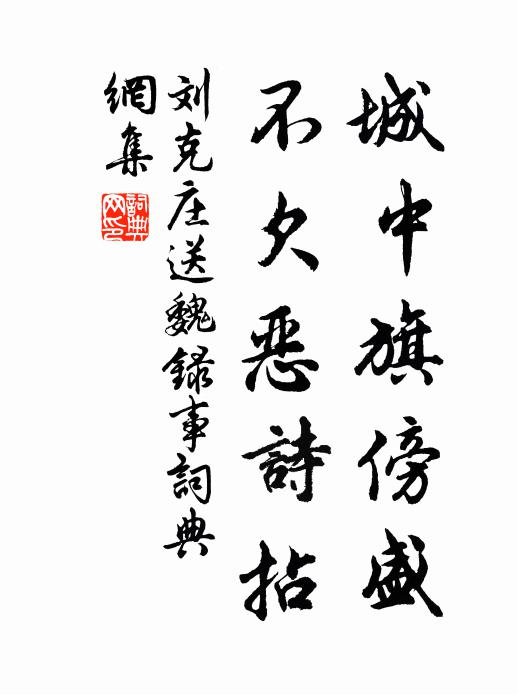 城中旗傍盛
不欠恶詩拈
刘克庄送魏録事詞典
網集
詞典网印